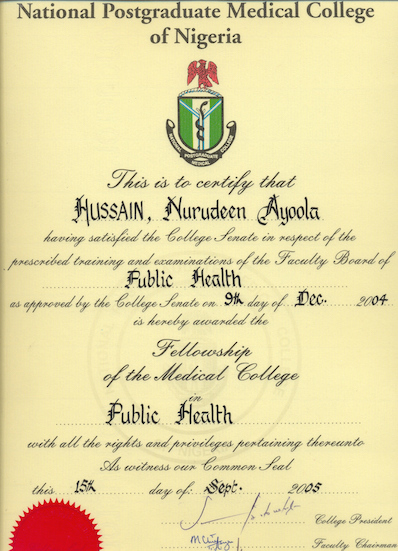 National Postgraduate Medical College
of Nigeria
NATIONAL POSTGRADUATE COLLEGE
MEDICAL
This is to certify that
HUSSAIN, Nurudeen Ayoola
having satisfied the College Senate in respect of the
prescribed training and examinations of the Faculty Board of
Public Health
as approved by the College Senate on 9th day of Dec. 2004
is hereby awarded the
Fellowship
of the Medical College
in
Public Health
with all the rights and privileges pertaining thereunto
As witness our Common Seal
this 15th day of: Sept. 2005
College President
Faculty Chairman